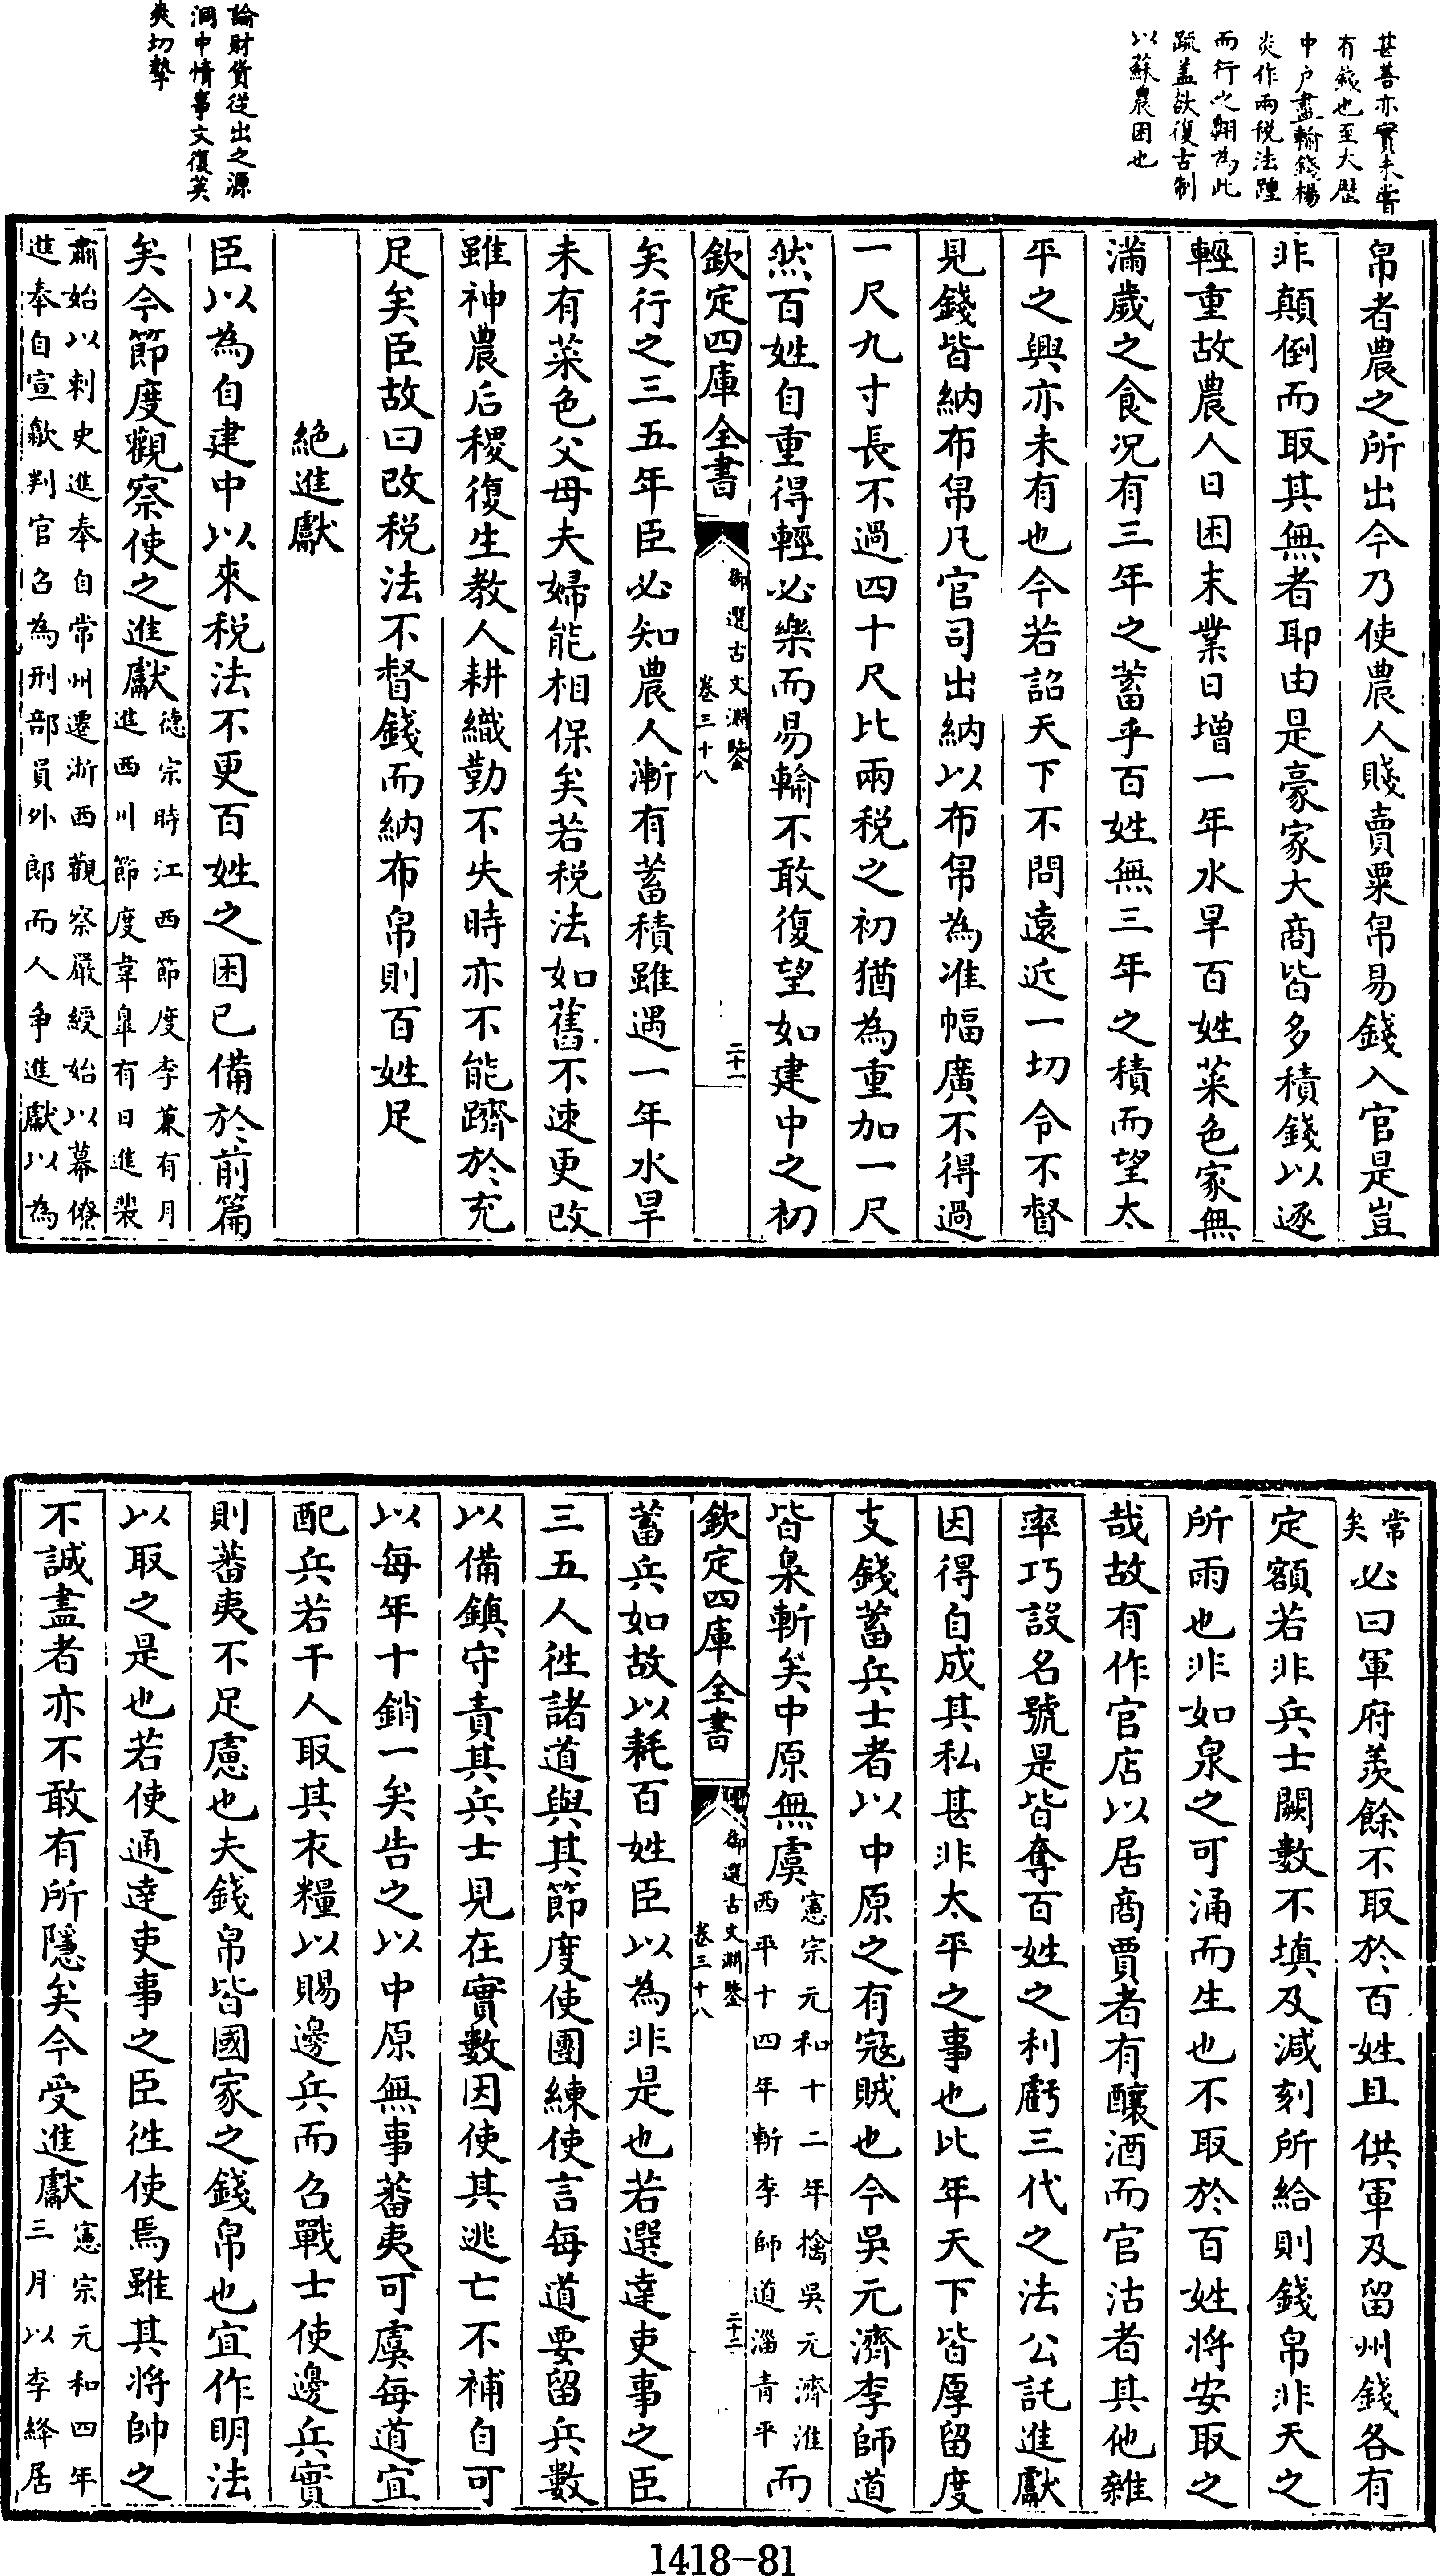 甚善亦實未嘗
有錢也至大歴
中户盡輸錢楊
炎作兩税法踵
而行之翺為此
疏盖欲復古制
以蘇農困也
論財貨從出之源
洞中情事文復英
爽切摯
帛者農之所出今乃使農人賤賣粟帛易錢入官是豈
非顛倒而取其無者耶由是豪家大商皆多積錢以逐
輕重故農人日困末業日增一年水旱百姓菜色家無
滿歲之食况有三年之蓄乎百姓無三年之積而望太
平之興亦未有也今若詔天下不問遠近一切令不督
見錢皆納布帛凡官司出納以布帛為准幅廣不得過
一尺九寸長不過四十尺比兩税之初猶為重加一尺
然百姓自重得輕必樂而易輸不敢復望如建中之初
欽定四庫全書
御選古文淵鑒
卷三十八
二十一
矣行之三五年臣必知農人漸有蓄積雖遇一年水旱
未有菜色父母夫婦能相保矣若税法如舊不速更改
雖神農后稷復生教人耕織勤不失時亦不能躋於充
足矣臣故曰改税法不督錢而納布帛則百姓足
絶進獻
臣以為自建中以來税法不更百姓之困已備於前篇
矣今節度觀察使之進獻
德宗時江西節度李蒹有月
進西川節度韋臯有日進裴
肅始以刺史進奉自常州遷浙西觀察嚴綬始以幕僚
進奉自宣歙判官召為刑部員外郎而人争進獻以為
常
矣
必曰軍府羨餘不取於百姓且供軍及留州錢各有
定額若非兵士闕數不填及減刻所給則錢帛非天之
所雨也非如泉之可涌而生也不取於百姓將安取之
哉故有作官店以居商賈者有釀酒而官沽者其他雜
率巧設名號是皆奪百姓之利虧三代之法公託進獻
因得自成其私甚非太平之事也比年天下皆厚留度
支錢蓄兵士者以中原之有寇賊也今吳元濟李師道
皆梟斬矣中原無虞
憲宗元和十二年擒吳元濟淮
西平十四年斬李師道淄青平
而
欽定四庫全書
御選古文淵鑒
卷三十八
二十二
蓄兵如故以耗百姓臣以為非是也若選達吏事之臣
三五人往諸道與其節度使團練使言每道要留兵數
以備鎮守責其兵士見在實數因使其逃亡不補自可
以每年十銷一矣告之以中原無事蕃夷可虞每道宜
配兵若干人取其衣糧以賜邊兵而召戰士使邊兵實
則蕃夷不足慮也夫錢帛皆國家之錢帛也宜作明法
以取之是也若使通達吏事之臣往使焉雖其將帥之
不誠盡者亦不敢有所隱矣今受進獻
憲宗元和四年
三月以李絳居
1418-81